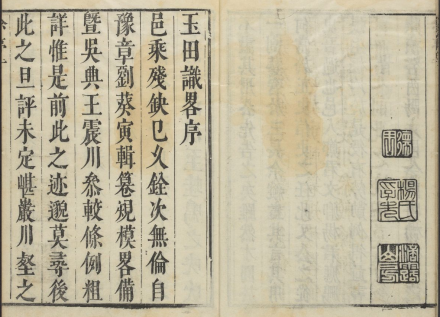 玉田識畧序
邑乘殘缺已久銓次無倫自
豫章劉葵寅輯篡䂓模畧備
暨吳典王震川叅較條例粗
詳惟是前此之迹邈莫尋後
此之旦評未定嵁巖川壑之